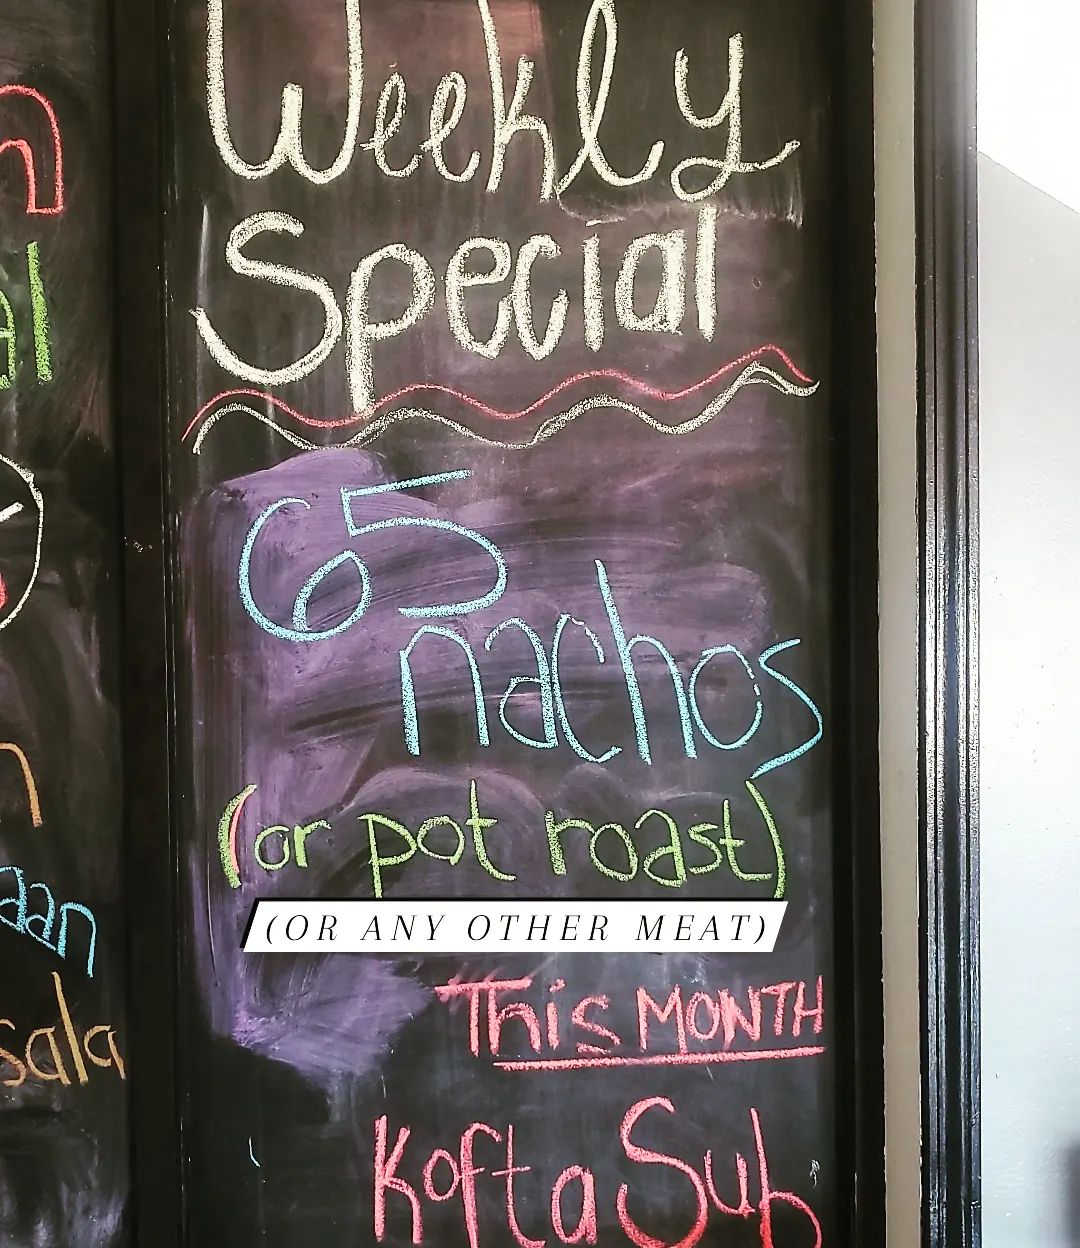 Weekly
Special
65
nachos
(or pot roast)
(OR ANY OTHER MEAT)
This MONTH
Kofta Sub